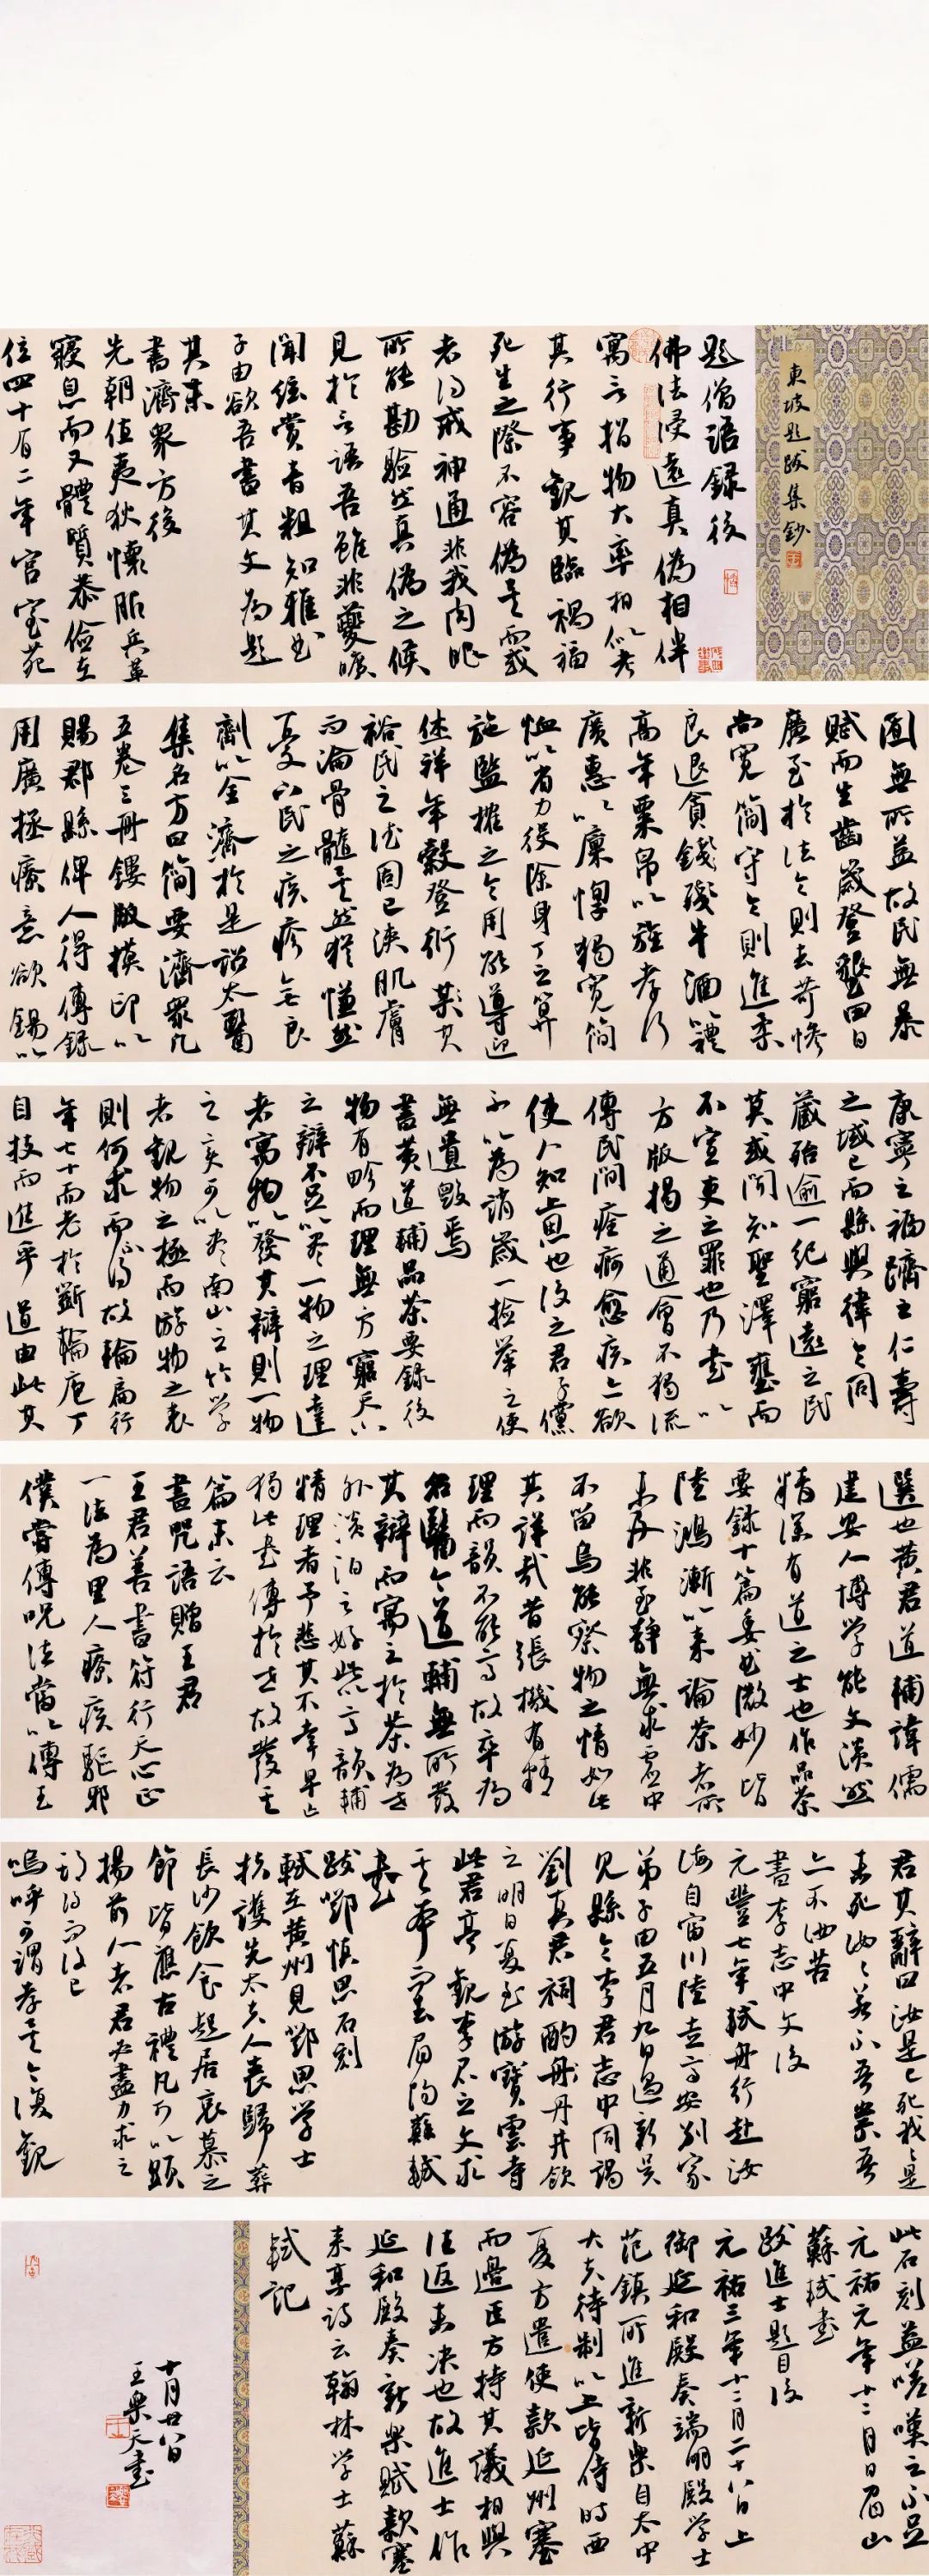 東坡題跋集鈔
題僧語錄後
佛法浸遠真偽相半
寓言指物大率相似考
其行事觀其臨禍福
死生之際不容偽矣而或
者得戒神通非我肉眼
所能勘驗然真偽之候
見於言語吾雖非夔曠
聞弦賞音粗知雅曲
子由欲吾書其文為題
其末
書濟眾方後
先朝值夷狄懷服兵革
寢息而又體質恭儉在
位四十有二年宮室苑
囿無所益故民無暴
賦而生齒歲登墾田日
廣至於法令則去苛慘
尚寬簡守令則進柔
良退貪殘牛酒禮
高年粟帛以旌孝行
廣惠以廩惸獨寬簡
恤以省力役除身丁之算
施監榷之令用能導迎
休祥年穀登衍其
裕民之德固已浹肌膚
而淪骨髓矣然猶慊然
憂下民之疾疹無良
劑以全濟於是詔太醫
集名方曰簡要濟眾凡
五卷三冊鏤版模印以
賜郡縣俾人得傳錄
用廣拯療意欲錫以
康寧之福躋之仁壽
之域已而縣與律令同
藏殆逾一紀窮遠之民
莫或聞知聖澤壅而
不宣吏之罪也乃書以
方版揭之通會不獨流
傳民間痊痾愈疾亦欲
使人知上恩也後之君子儻
不以為誚歲一檢舉之使
無遺毀焉
書黃道輔品茶要錄後
物有畛而理無方窮天下
之辯不足以盡一物之理達
者寓物以發其辯則一物
之變可以盡南山之竹學
者觀物之極而游物之表
則何求而不得故輪扁行
年七十而老於斲輪庖丁
自技而進乎道由此其
選也黃君道輔諱儒
建安人博學能文淡然
精深有道之士也作品茶
要錄十篇委曲微妙皆
陸鴻漸以來論茶者所
未及非至靜無求虛中
不留烏能察物之情如此
其詳哉昔張機有精
理而韻不能高故卒為
名醫今道輔無所發
其辯而寓之於茶為世
外淡泊之好此以高韻輔
精理者予悲其不幸早亡
獨此書傳於世故發其
篇末云
書咒語贈王君
王君善書符行天心正
一法為里人療疾驅邪
僕嘗傳咒法當以傳王
君其辭曰汝是已死我我是
未死汝汝若不吾祟吾
亦不汝苦
書李志中文後
元豐七年軾舟行赴汝
海自富川陸走高安別家
弟子由五月九日過新吳
見縣令李君志中同謁
劉真君祠酌丹井飲
之明日復至游寶雲寺
此君亭觀李君之文求
其本而去眉陽蘇軾
書
跋鄧慎思石刻
軾在黃州見鄧思學士
扶護先太夫人喪歸葬
長沙飲食起居哀慕之
節皆應古禮凡可以顯
揚前人者君必盡力求之
期得而後已
嗚呼可謂孝矣今復觀
此石刻益嗟嘆之不足
元祐元年十二月日眉山
蘇軾書
跋進士題目後
元祐三年十二月二十八日上
御延和殿奏端明殿學士
范鎮所進新樂自太中
大夫待制以上皆侍時西
夏方遣使款延州塞
而邊臣方持其議相與
往返未決也故進士作
延和殿奏新樂賦款塞
來享詩云翰林學士蘇
軾記
十月廿八日
王樂天書